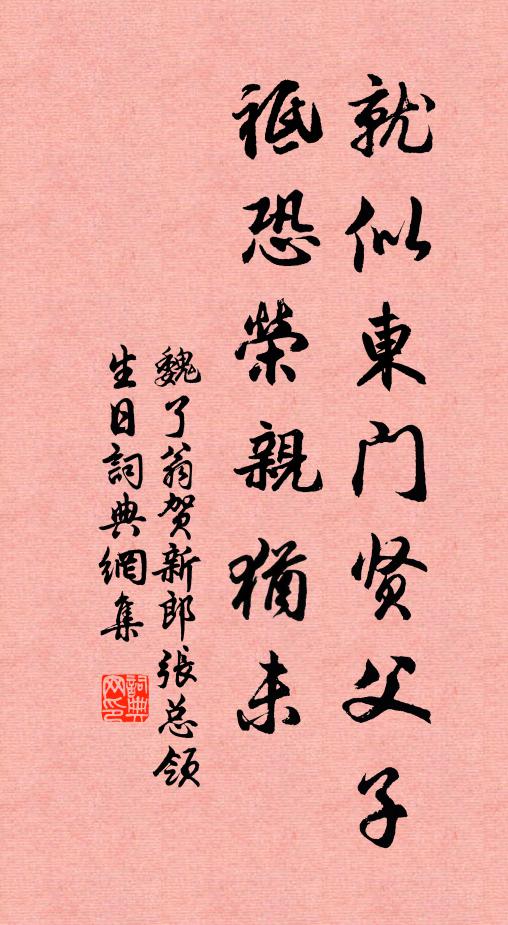 就似東门贤父子
祗恐榮親猶未
魏了翁贺新郎張总领
生日詞典網集
詞典
网印